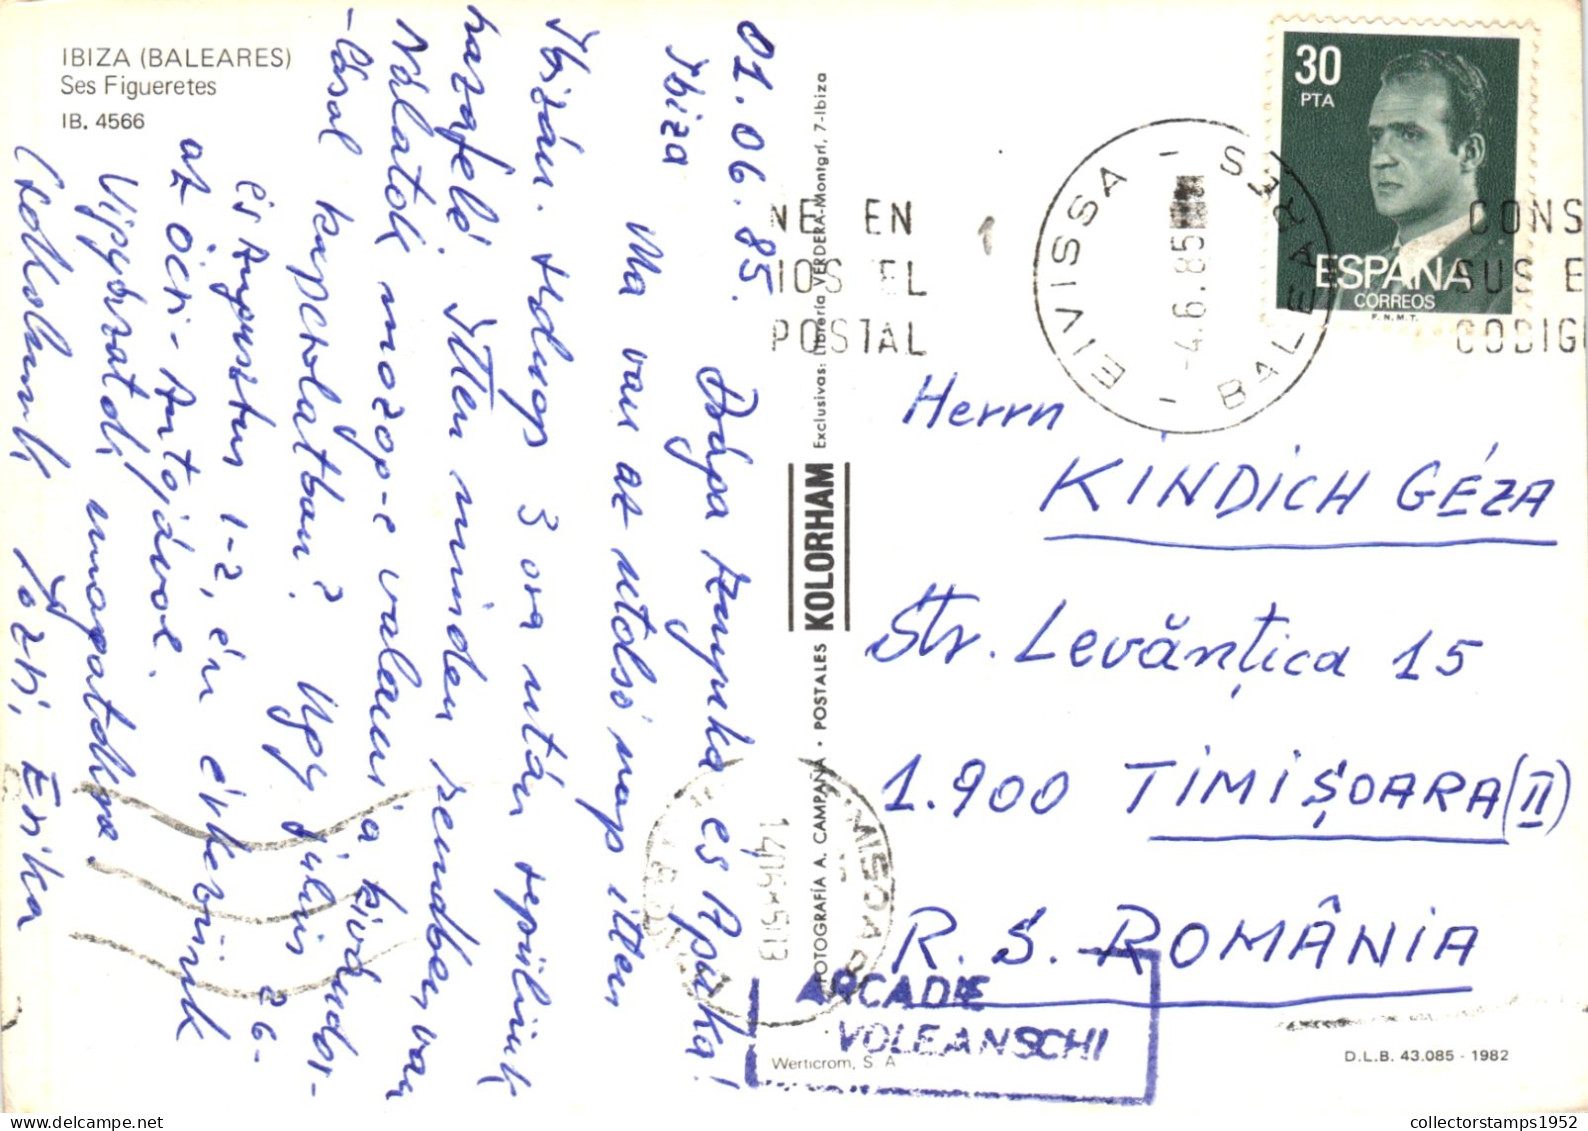 IBIZA (BALEARES)
Ses Figueretes
IB. 4566
01.06.85.
Ibiza
Drága Anyuka és Apuka!
Ma van az utolsó nap itten
Ibizán. Holnap 3 ora után repülünk
hazafelé. Itten minden rendben van
Nálatok mozog-e valami a kivándor-
-lásal kapcsolatban? Ugy julius 26-
és Augusztus 1-2, én érkezünk
az Öcsi-Autojával.
Vigyázzatok magatokra
Csokolunk Jozsi, Erika
Exclusivas: Librería VERDERA-Montgrí, 7-Ibiza
KOLORHAM
FOTOGRAFÍA A. CAMPAÑÁ · POSTALES
Werticrom, S. A
D.L.B. 43.085 - 1982
30
PTA
ESPAÑA
CORREOS
F.N.M.T.
EIVISSA
BALEARES
-4.6.85
NE EN
IOS EL
POSTAL
CONS
SUS E
CODIG
Herrn
KINDICH GÉZA
Str. Levănțica 15
1.900 TIMIȘOARA (II)
R. S. ROMÂNIA
TIMISOARA
ARCADIE
VOLEANSCHI
collectorstamps1952